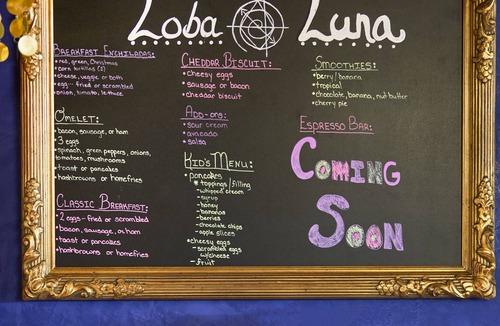 Loba Luna
Breakfast Enchiladas:
• red, green, Christmas
• corn tortillas (2)
• cheese, veggie or both
• egg- fried or scrambled
• onion, tomato, lettuce
Omelet:
• bacon, sausage, or ham
• 3 eggs
• spinach, green peppers, onions,
tomatoes, mushrooms
• toast or pancakes
• hashbrowns or homefries
Classic Breakfast:
• 2 eggs - fried or scrambled
• bacon, sausage, or ham
• toast or pancakes
• hashbrowns or homefries
Cheddar Biscuit:
• cheesy eggs
• sausage or bacon
• cheddar biscuit
Add-ons:
• sour cream
• avocado
• salsa
Kid's Menu:
• pancakes
* toppings/filling
- whipped cream
- syrup
- honey
- bananas
- berries
- chocolate chips
- apple slices
• cheesy eggs
- scrambled eggs
w/cheese
- fruit
Smoothies:
• berry/banana
• tropical
• chocolate, banana, nut butter
• cherry pie
Espresso Bar:
Coming
Soon